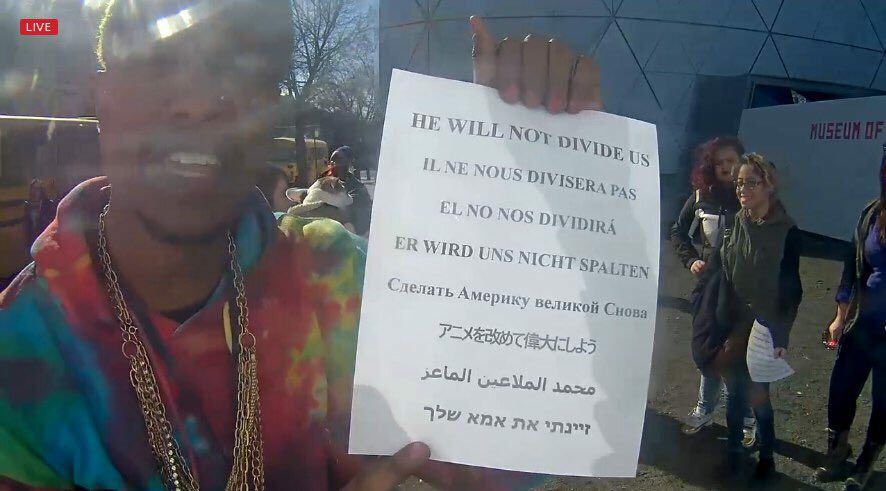 LIVE
MUSEUM OF
HE WILL NOT DIVIDE US
IL NE NOUS DIVISERA PAS
EL NO NOS DIVIDIRÁ
ER WIRD UNS NICHT SPALTEN
Сделать Америку великой Снова
アニメを改めて偉大にしよう
محمد الملاعين الماعز
זיינתי את אמא שלך